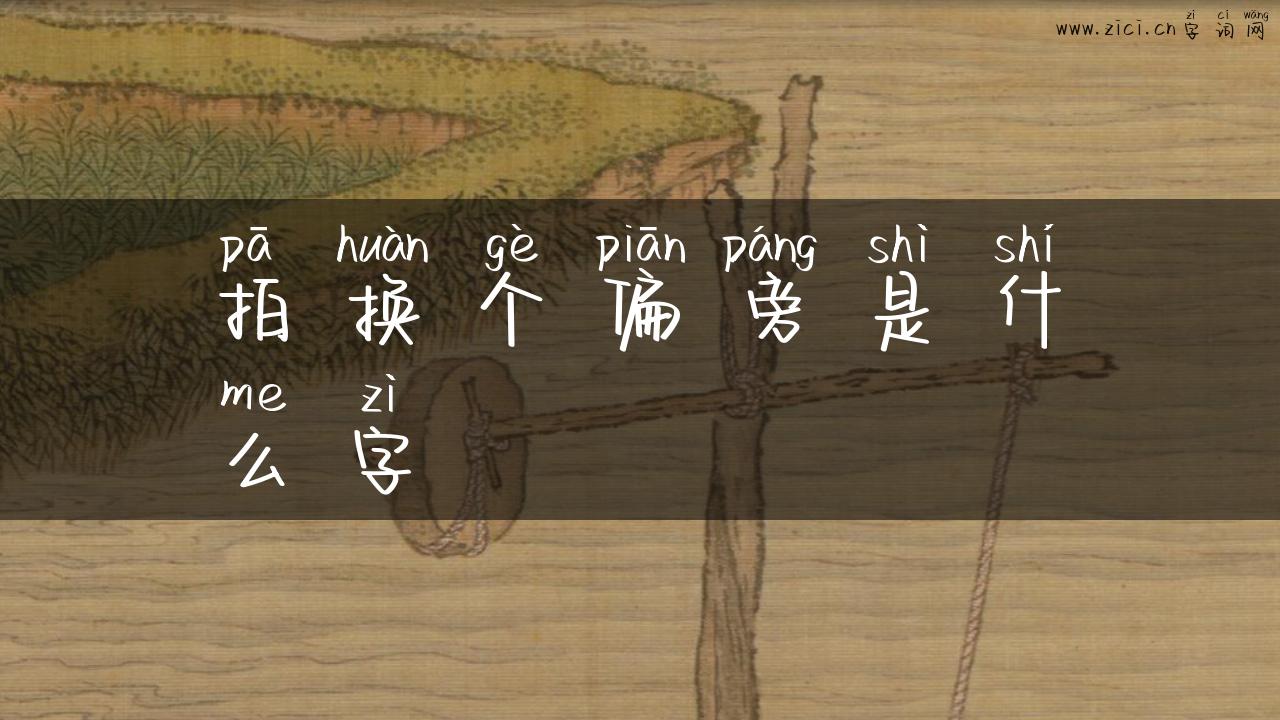 zì cí wǎng
www.zici.cn 字词网
pā huàn gè piān páng shì shí
拍换个偏旁是什
me zì
么字